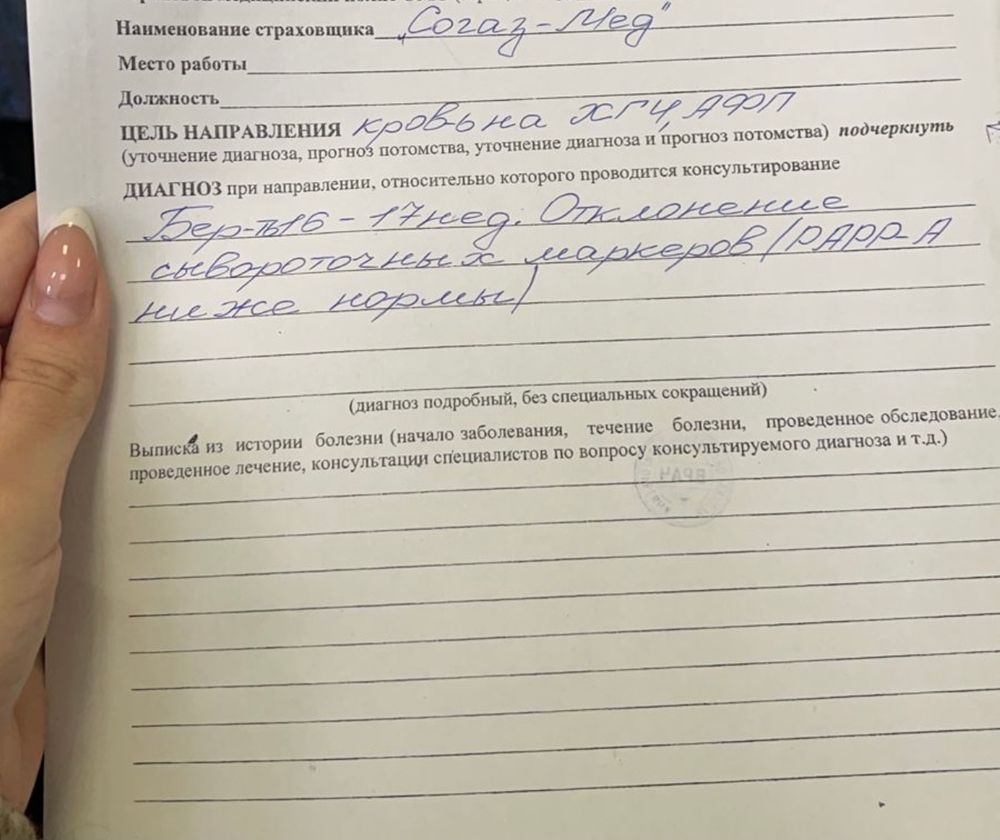 Наименование страховщика „Согаз-Мед"
Место работы
Должность
ЦЕЛЬ НАПРАВЛЕНИЯ кровь на ХГЧ, АФП
(уточнение диагноза, прогноз потомства, уточнение диагноза и прогноз потомства) подчеркнуть
ДИАГНОЗ при направлении, относительно которого проводится консультирование
Бер-ть 16-17 нед. Отклонение
сывороточных маркеров (PAPP-A
ниже нормы)
(диагноз подробный, без специальных сокращений)
Выписка из истории болезни (начало заболевания, течение болезни, проведенное обследование,
проведенное лечение, консультации специалистов по вопросу консультируемого диагноза и т.д.)
ВРАЧ